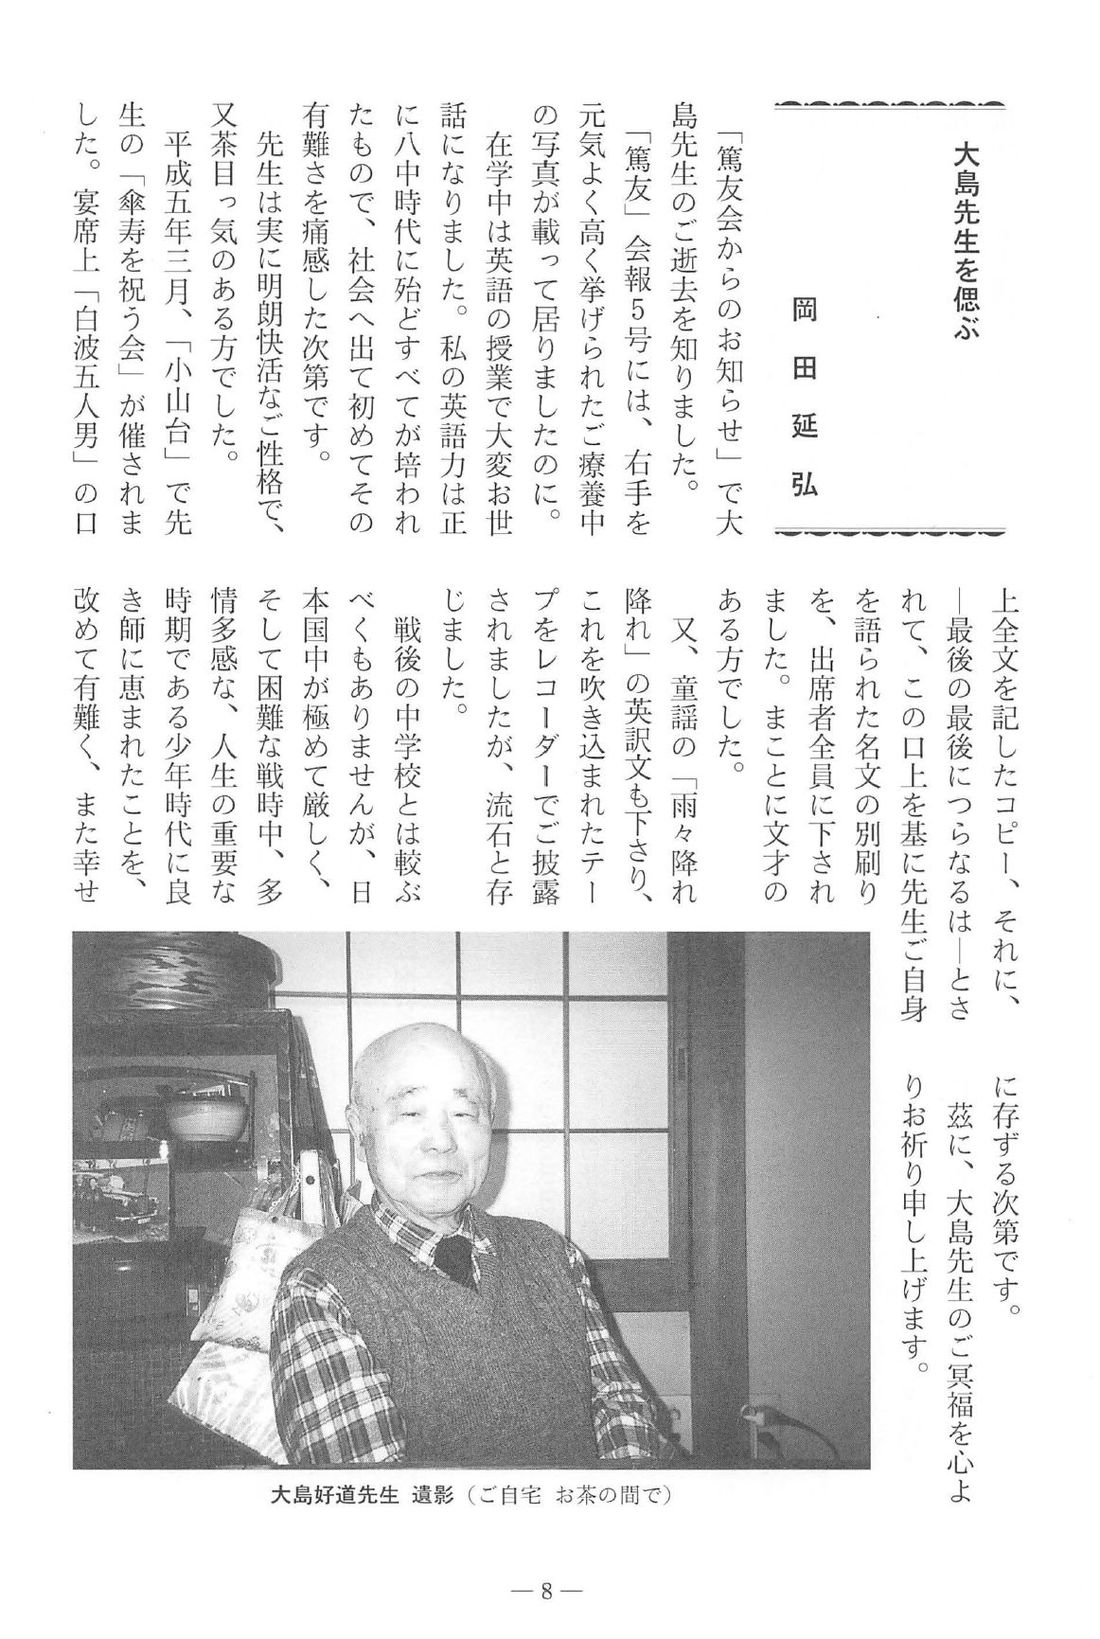 大島先生を偲ぶ
岡田延弘
「篤友会からのお知らせ」で大
島先生のご逝去を知りました。
「篤友」会報5号には、右手を
元気よく高く挙げられたご療養中
の写真が載って居りましたのに。
在学中は英語の授業で大変お世
話になりました。私の英語力は正
に八中時代に殆どすべてが培われ
たもので、社会へ出て初めてその
有難さを痛感した次第です。
先生は実に明朗快活なご性格で、
又茶目っ気のある方でした。
平成五年三月、「小山台」で先
生の「傘寿を祝う会」が催されま
した。宴席上「白波五人男」の口
上全文を記したコピー、それに、
―最後の最後につらなるは―とさ
れて、この口上を基に先生ご自身
を語られた名文の別刷り
を、出席者全員に下され
ました。まことに文才の
ある方でした。
又、童謡の「雨々降れ
降れ」の英訳文も下さり、
これを吹き込まれたテー
プをレコーダーでご披露
されましたが、流石と存
じました。
戦後の中学校とは較ぶ
べくもありませんが、日
本国中が極めて厳しく、
そして困難な戦時中、多
情多感な、人生の重要な
時期である少年時代に良
き師に恵まれたことを、
改めて有難く、また幸せ
に存ずる次第です。
茲に、大島先生のご冥福を心よ
りお祈り申し上げます。
大島好道先生 遺影（ご自宅 お茶の間で）
― 8 ―